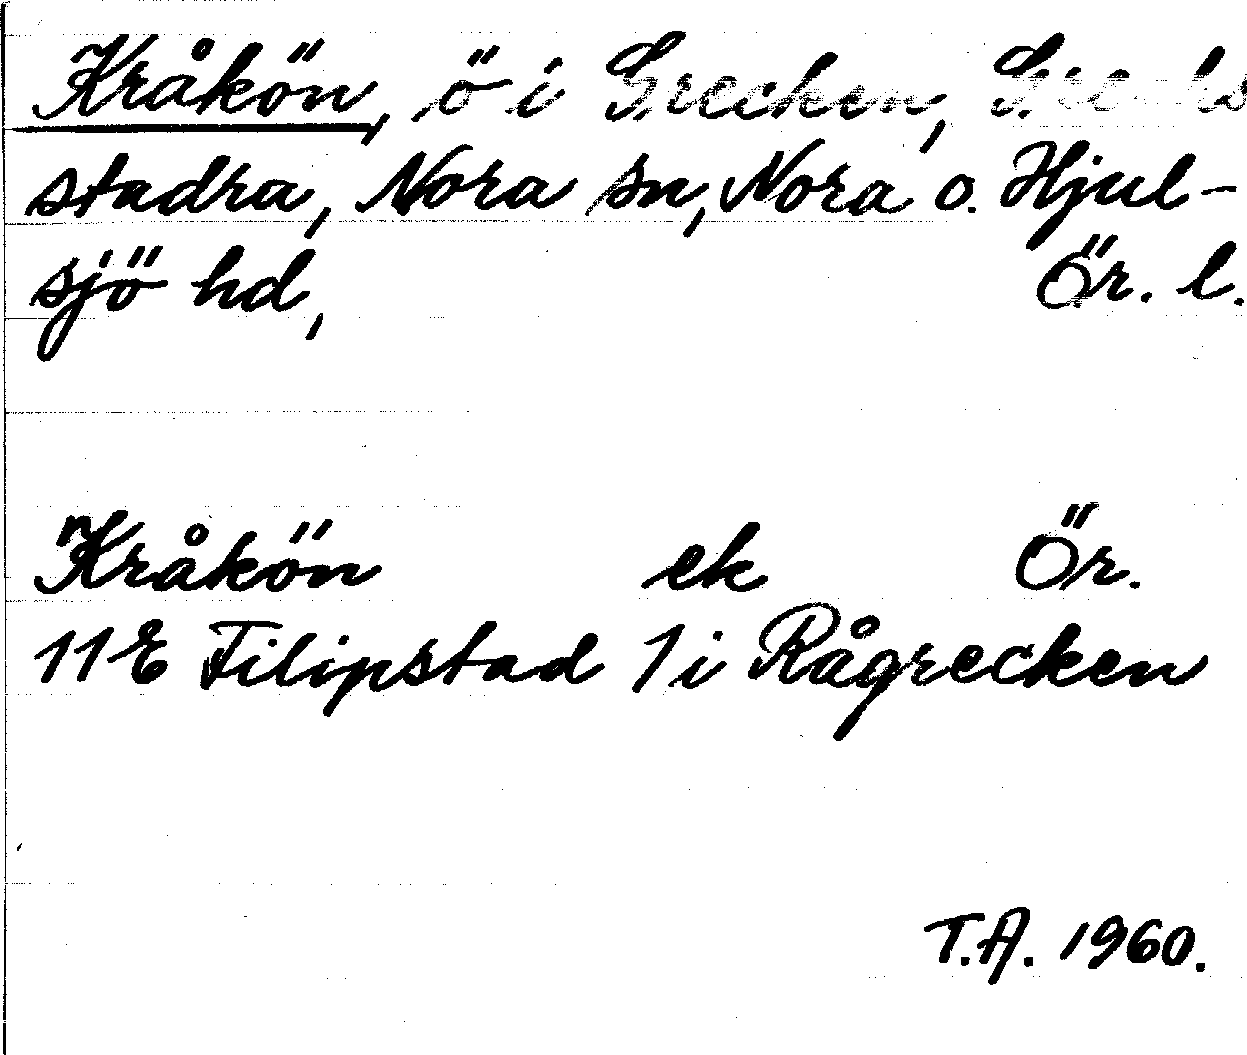 Kråkön, ö i Grecken,
stadra, Nora sn, Nora o. Hjul-
sjö hd, Ör. l.
Kråkön ek Ör.
11E Filipstad 1i Rågrecken
T.A. 1960.